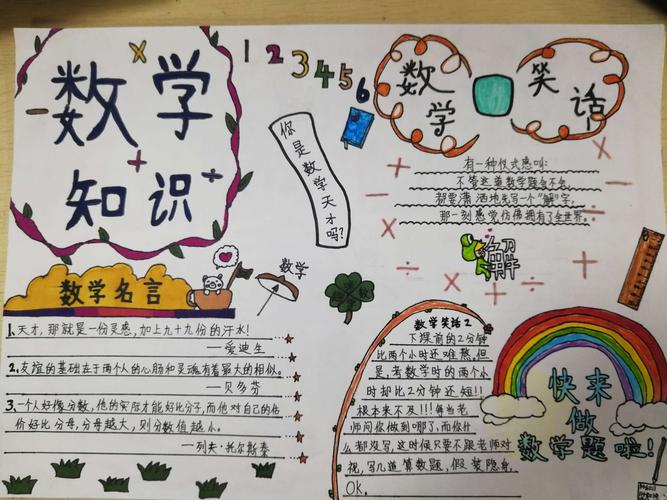 数学
知识
1 2 3 4 5 6
你是数学天才吗?
数学
笑话
有一种仪式感叫:
不管这道数学题会不会,
都要潇洒地先写一个“解”字,
那一刻感觉仿佛拥有了全世界。
解
数学名言
数学
1、天才,那就是一份灵感,加上九十九份的汗水!
—爱迪生
2、友谊的基础在于两个人的心肠和灵魂有着最大的相似。
—贝多芬
3、一个人好像分数,他的实际才能好比分子,而他对自己的估
价好比分母,分母越大,则分数值越小。
—列夫·托尔斯泰
数学笑话2
下课前的2分钟
比两个小时还难熬,但
是,考数学时的两个小
时却比2分钟还短!!
根本来不及!!!每当老
师问你做到哪了,而你什
么都没写,这时候只要不跟老师对
视,写几道算数题,假装隐身,
OK.
快来
做
数学题啦!